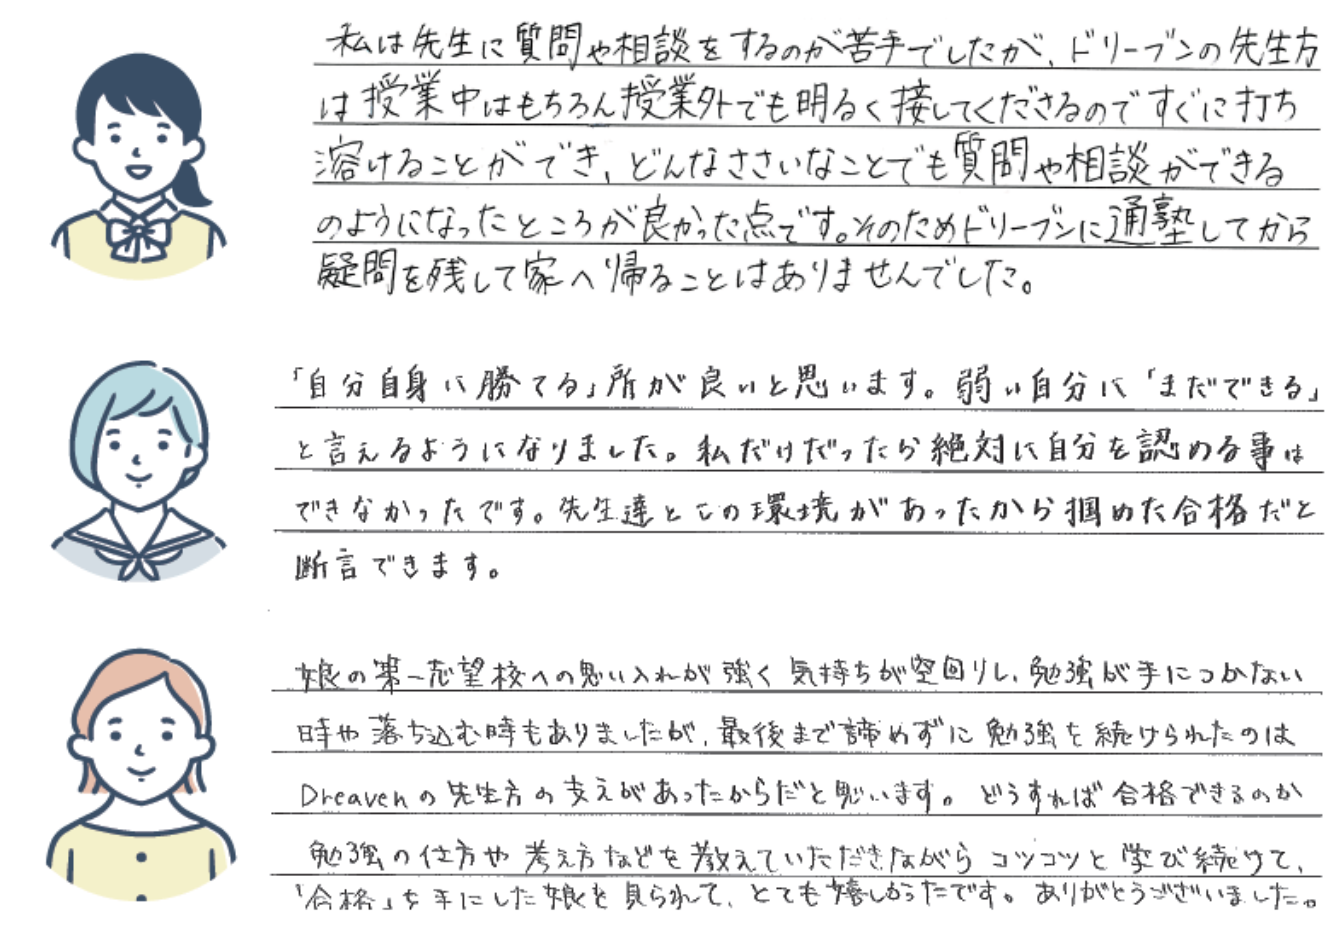 私は先生に質問や相談をするのが苦手でしたが、ドリーブンの先生方
は授業中はもちろん授業外でも明るく接してくださるのですぐに打ち
溶けることができ、どんなささいなことでも質問や相談ができる
のようになったところが良かった点です。そのためドリーブンに通塾してから
疑問を残して家へ帰ることはありませんでした。
「自分自身に勝てる」所が良いと思います。弱い自分に「まだできる」
と言えるようになりました。私だけだったら絶対に自分を認める事は
できなかったです。先生達とこの環境があったから掴めた合格だと
断言できます。
娘の第一志望校への思い入れが強く気持ちが空回りし、勉強が手につかない
時や落ち込む時もありましたが、最後まで諦めずに勉強を続けられたのは
Dreavenの先生方の支えがあったからだと思います。どうすれば合格できるのか
勉強の仕方や考え方などを教えていただきながらコツコツと学び続けて、
「合格」を手にした娘を見られて、とても嬉しかったです。ありがとうございました。